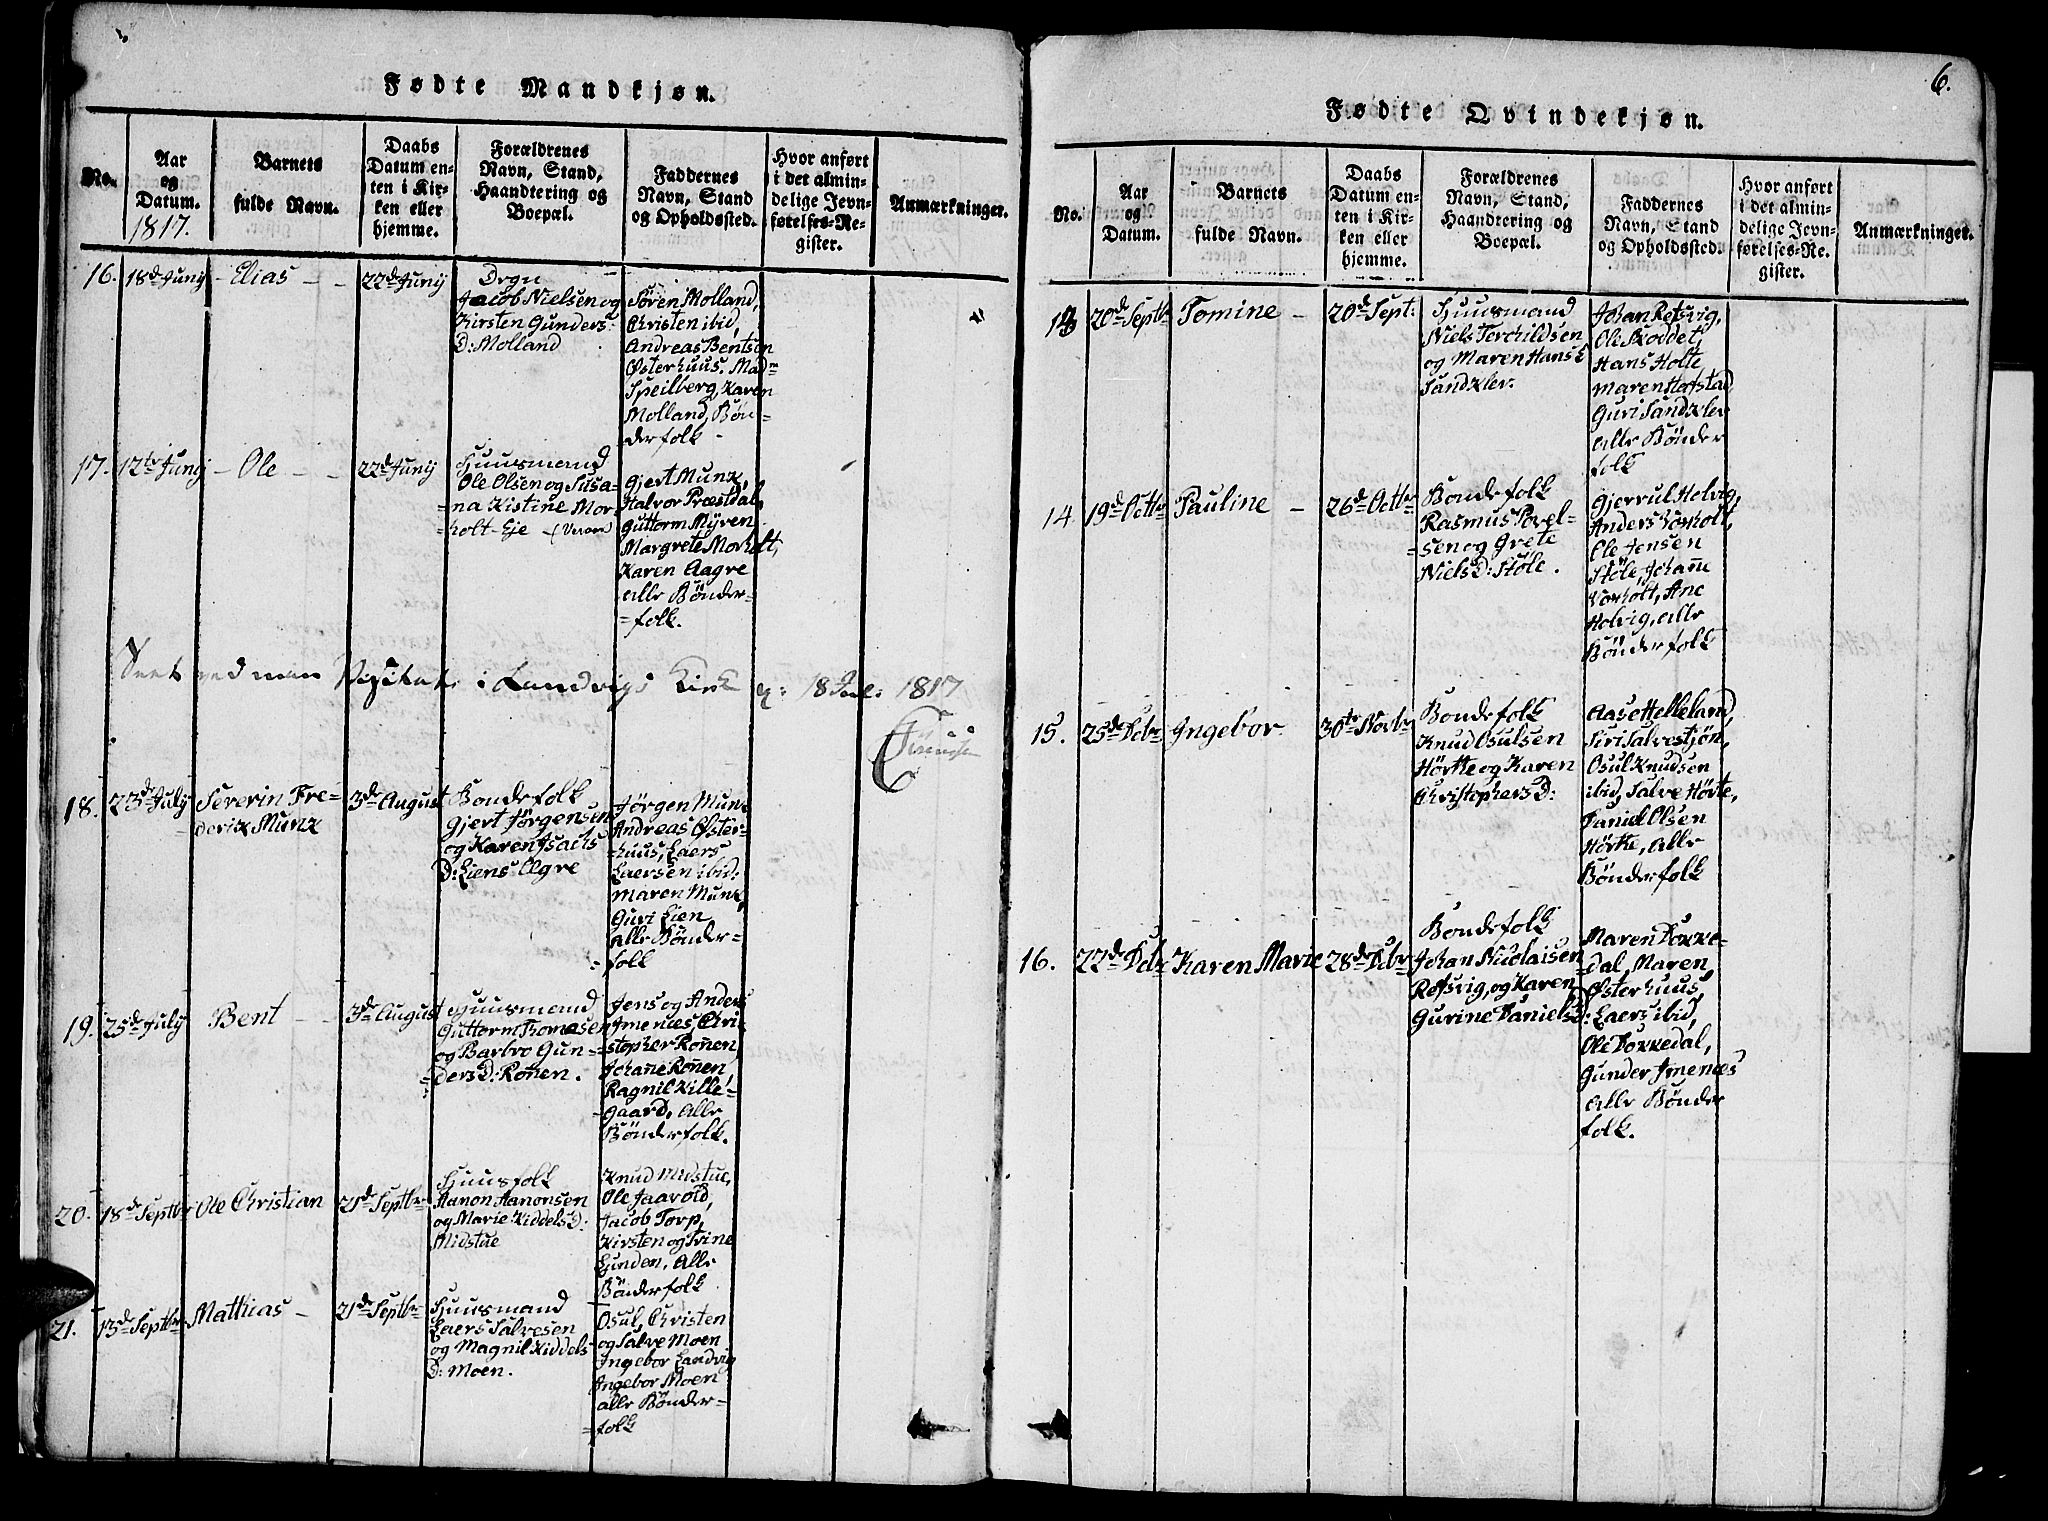 Fødte Mandkjøn.
No.
Aar
og
Datum.
1817.
Barnets
fulde Navn.
Daabs
Datum en-
ten i Kir-
ken eller
hjemme.
Forældrenes
Navn, Stand,
Haandtering og
Boepæl.
Faddernes
Navn, Stand
og Opholdssted.
Hvor anført
i det almin-
delige Jevn-
førelses-Re-
gister.
Anmærkninger.
16. 18d Junij - Elias - - 22d Junij
Jacob Nielsen og
Kirsten Gunders
D: Molland
Sören Molland,
Christen ibid,
Andreas Bentsen
Østerhuus. Madm
Speilberg, Karen
Molland, Bön-
derfolk
17. 12te Junij - Ole - - 22d Junij
Huusmand
Ole Olsen og Susa-
na Kistine Mor-
holt-Eje
Gjert Munk,
Halvor Præstdal,
Guttorm Myren
Margrete Morholt,
Karen Aagre
alle Bönder-
folk.
i Landvigs Kirk 18 Jul: 1817
18. 23d July Severin Fre-
derik Munk
3de August
Bondefolk
Gjert Jörgensen
og Karen Isachs
D: Liens Agre
Jörgen Munk
Andreas Øster-
huus, Laers
Laersen ibid,
Maren Munk,
Guri Lien,
alle Bönder-
folk
19. 25d July Bent - - 3de August
Huusmand
Guttorm Thomesen
og Barbro Gun-
ders D: Rönen.
Jens og Anders
Imenæs, Chri-
stopher Rönen,
Johane Rönen,
Ragnil Kille-
gaard, alle
Bönderfolk.
20. 18d Septbr Ole Christian 21d Septbr
Huusfolk
Aanon Aanonsen
og Marie Kiddels D:
Midstue
Knud Midstue,
Ole Jaavold,
Jacob Torp,
Kirsten og Trine
Lunden, Alle
Bönderfolk
21. 13d Septbr Mathias - 21d Septbr
Huusmand
Laers Salvesen
og Magnil Kiddels
D: Moen.
Osul, Christen
og Salve Moen
Ingebor Landvig
Ingebor Moen
alle Bönder-
folk
6.
Fødte Qvindekjøn.
No.
Aar
og
Datum.
Barnets
fulde Navn.
Daabs
Datum en-
ten i Kir-
ken eller
hjemme.
Forældrenes
Navn, Stand,
Haandtering og
Boepæl.
Faddernes
Navn, Stand
og Opholdssted.
Hvor anført
i det almin-
delige Jevn-
førelses-Re-
gister.
Anmærkninger.
13 20d Septbr Tomine - 20d Sept:
Huusmand
Niels Terchildsen
og Maren Hans D
Sandkler
Johan Refsvig,
Ole Skoddet,
Hans Holte,
Maren Hofstad,
Guri Sandkler
alle Bönder
folk
14. 19d Octbr Pauline - 26d Octbr
Bondefolk
Rasmus Povel-
sen og Grete
Niels D: Stöle.
Gjerrul Holvig,
Anders Vorholt,
Ole Jensen
Stöle, Johane
Vorholt, Ane
Holvig, alle
Bönderfolk
15. 25d Dcbr Ingebor 30te Novbr
Bondefolk
Knud Osulsen
Hörtte og Karen
Christophers D:
Aase Helleland,
Siri Salvestjön,
Osul Knudsen
ibid, Salve Hörte,
Daniel Olsen
Hörtte, alle
Bönderfolk
16. 22d Dcbr Karen Marie 28d Dcbr
Bondefolk
Johan Nicolaisen
Refsvig, og Karen
Gurine Daniels D:
Maren Dokke-
dal, Maren
Østerhuus
Laers ibid,
Ole Dokkedal,
Gunder Imenæs
alle Bönder
folk.